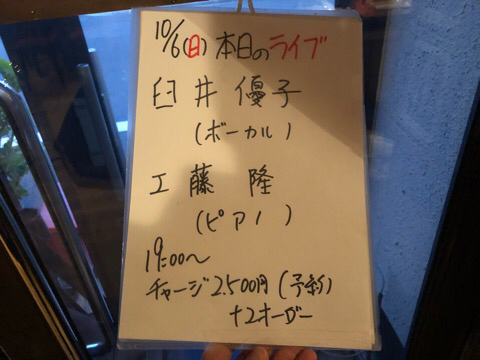 10/6(日)本日のライブ
臼井優子
(ボーカル)
工藤 隆
(ピアノ)
19:00〜
チャージ2,500円(予約)
+2オーダー